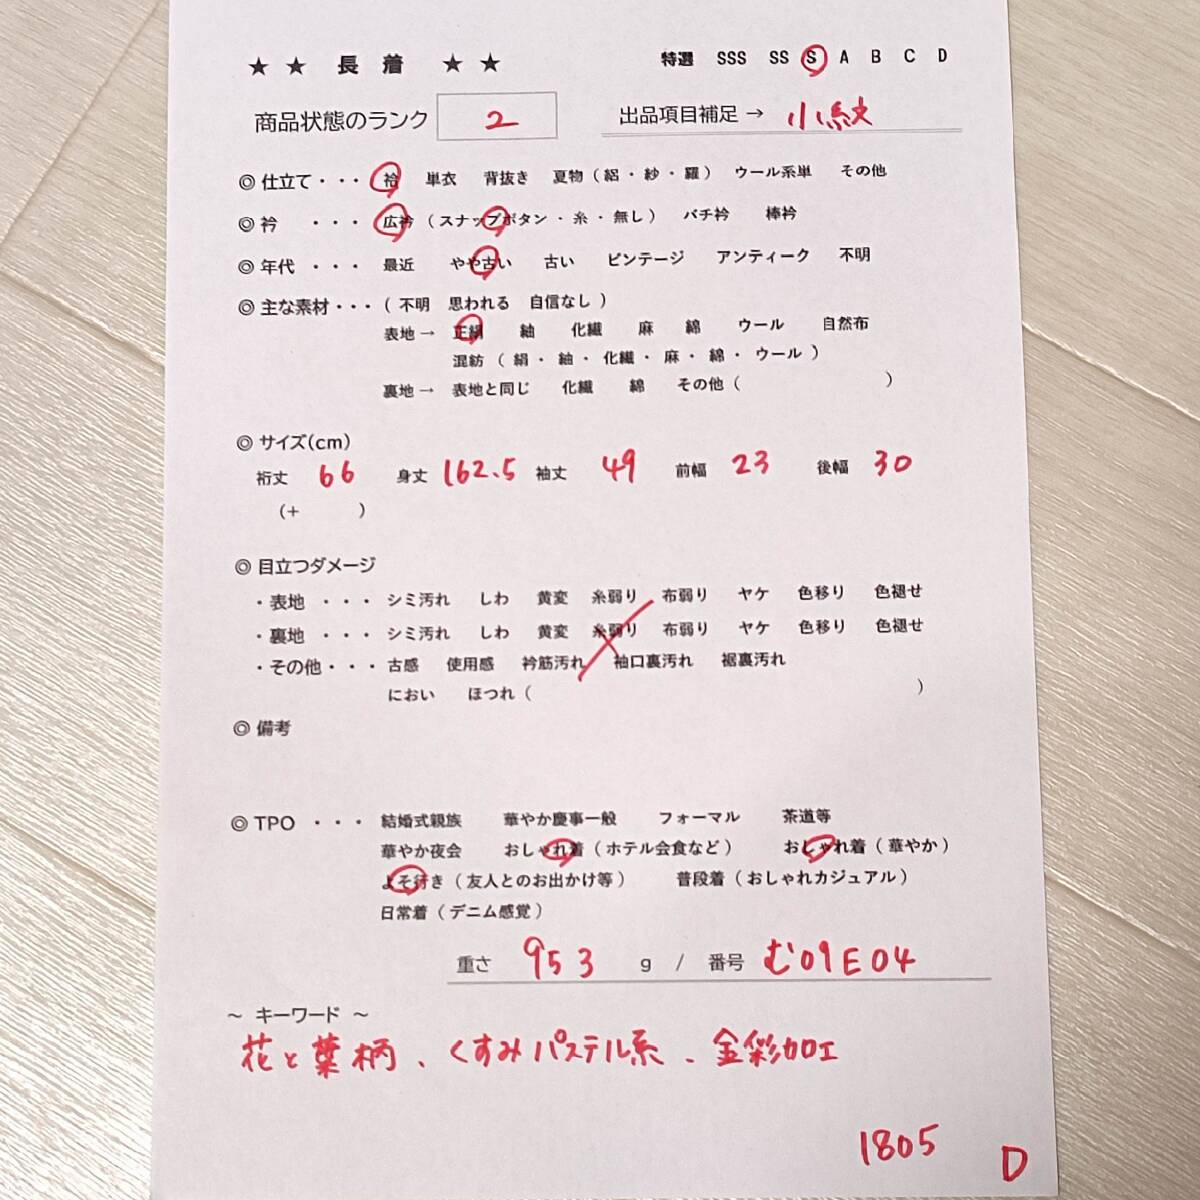 ★ ★ 長 着 ★ ★ 特選 SSS SS S A B C D
商品状態のランク 2 出品項目補足 → 小紋
◎ 仕立て・・・ 袷 単衣 背抜き 夏物 ( 絽 ・ 紗 ・ 羅 ) ウール系単 その他
◎ 衿 ・・・ 広衿 ( スナップボタン ・ 糸 ・ 無し ) バチ衿 棒衿
◎ 年代 ・・・ 最近 やや古い 古い ビンテージ アンティーク 不明
◎ 主な素材・・・ ( 不明 思われる 自信なし )
表地 → 正絹 紬 化繊 麻 綿 ウール 自然布
混紡 ( 絹 ・ 紬 ・ 化繊 ・ 麻 ・ 綿 ・ ウール )
裏地 → 表地と同じ 化繊 綿 その他 ( )
◎ サイズ(cm)
裄丈 66 身丈 162.5 袖丈 49 前幅 23 後幅 30
(+ )
◎ 目立つダメージ
・表地 ・・・ シミ汚れ しわ 黄変 糸弱り 布弱り ヤケ 色移り 色褪せ
・裏地 ・・・ シミ汚れ しわ 黄変 糸弱り 布弱り ヤケ 色移り 色褪せ
・その他・・・ 古感 使用感 衿筋汚れ 袖口裏汚れ 裾裏汚れ
におい ほつれ ( )
◎ 備考
◎ TPO ・・・ 結婚式親族 華やか慶事一般 フォーマル 茶道等
華やか夜会 おしゃれ着 ( ホテル会食など ) おしゃれ着 ( 華やか )
よそ行き ( 友人とのお出かけ等 ) 普段着 ( おしゃれカジュアル )
日常着 ( デニム感覚 )
重さ 953 g / 番号 む09E04
～ キーワード ～
花と葉柄、くすみパステル系、金彩加工
1805
D